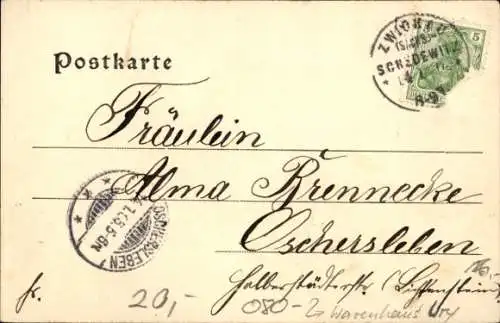 Postkarte
ZWICKAU
(SACHSEN)
SCHEDEWITZ
5
Fräulein
Alma Brennecke
Oschersleben
OSCHERSLEBEN
5-6N
Halberstädterstr. (Lichtenstein)
fr.
20,-
080-
Warenhaus Ury